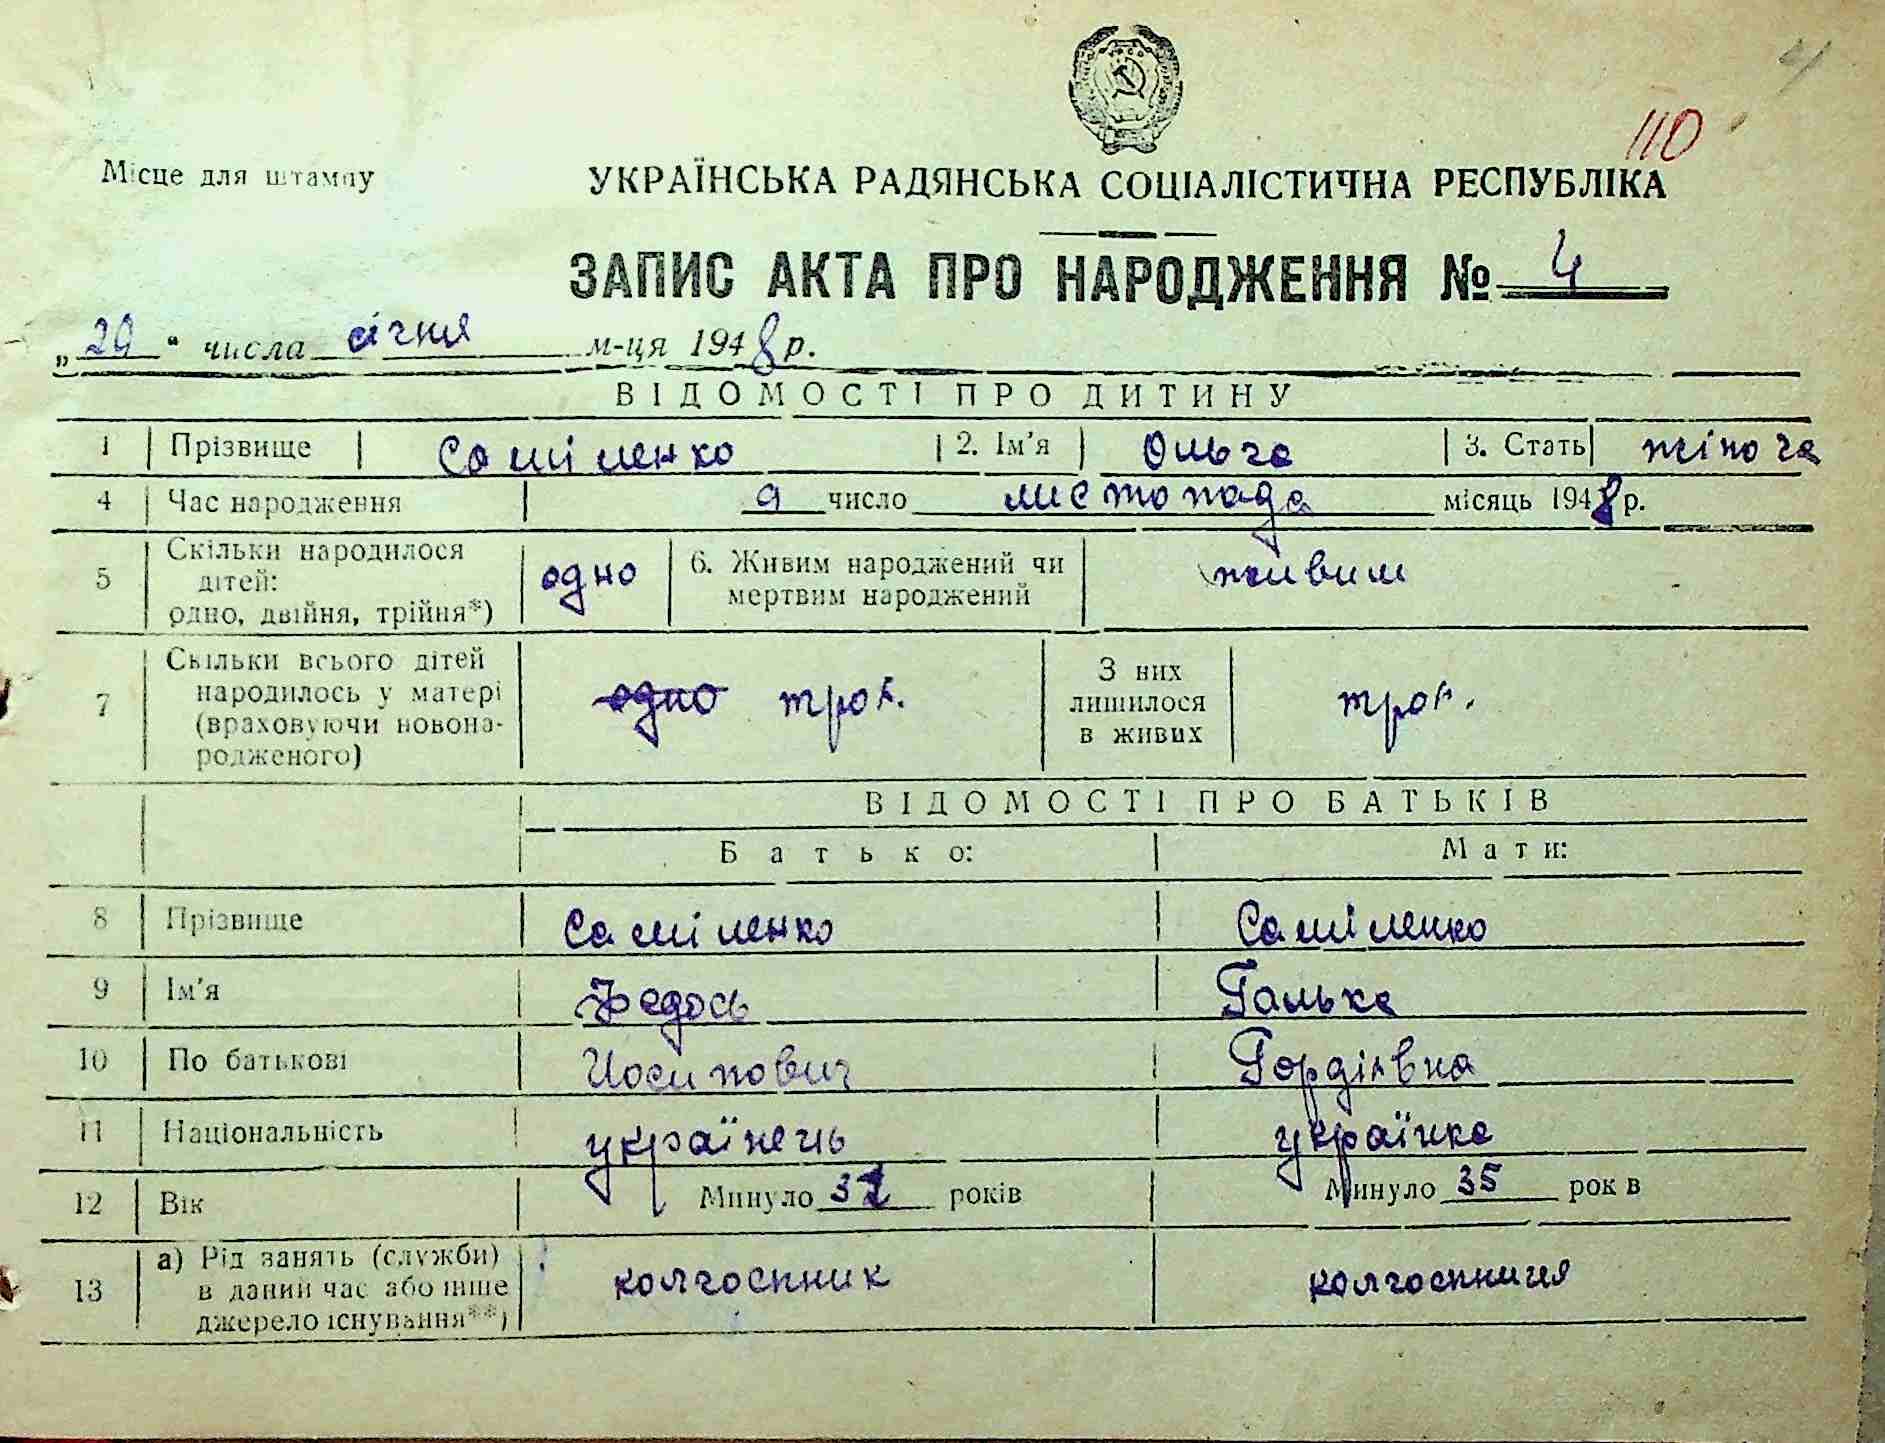 110
Місце для штампу
УКРАЇНСЬКА РАДЯНСЬКА СОЦІАЛІСТИЧНА РЕСПУБЛІКА
ЗАПИС АКТА ПРО НАРОДЖЕННЯ № 4
„29“ числа січня м-ця 1948 р.
ВІДОМОСТІ ПРО ДИТИНУ
1 Прізвище Саміленко 2. Ім'я Ольга 3. Стать жіноча
4 Час народження 9 число листопада місяць 1948 р.
5 Скільки народилося дітей: одно, двійня, трійня*) одно 6. Живим народжений чи мертвим народжений живим
7 Скільки всього дітей народилось у матері (враховуючи новонародженого) одно троє. З них лишилося в живих троє.
ВІДОМОСТІ ПРО БАТЬКІВ
Батько: Мати:
8 Прізвище Саміленко Саміленко
9 Ім'я Федось Галька
10 По батькові Йосипович Гордієвна
11 Національність українець українка
12 Вік Минуло 32 років Минуло 35 рок в
13 а) Рід занять (служби) в даний час або інше джерело існування**) колгоспник колгоспниця